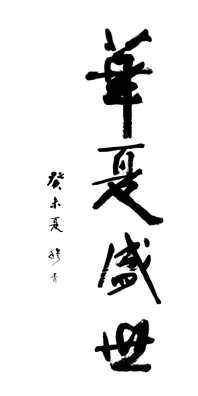 華夏盛世
癸未夏 穆青